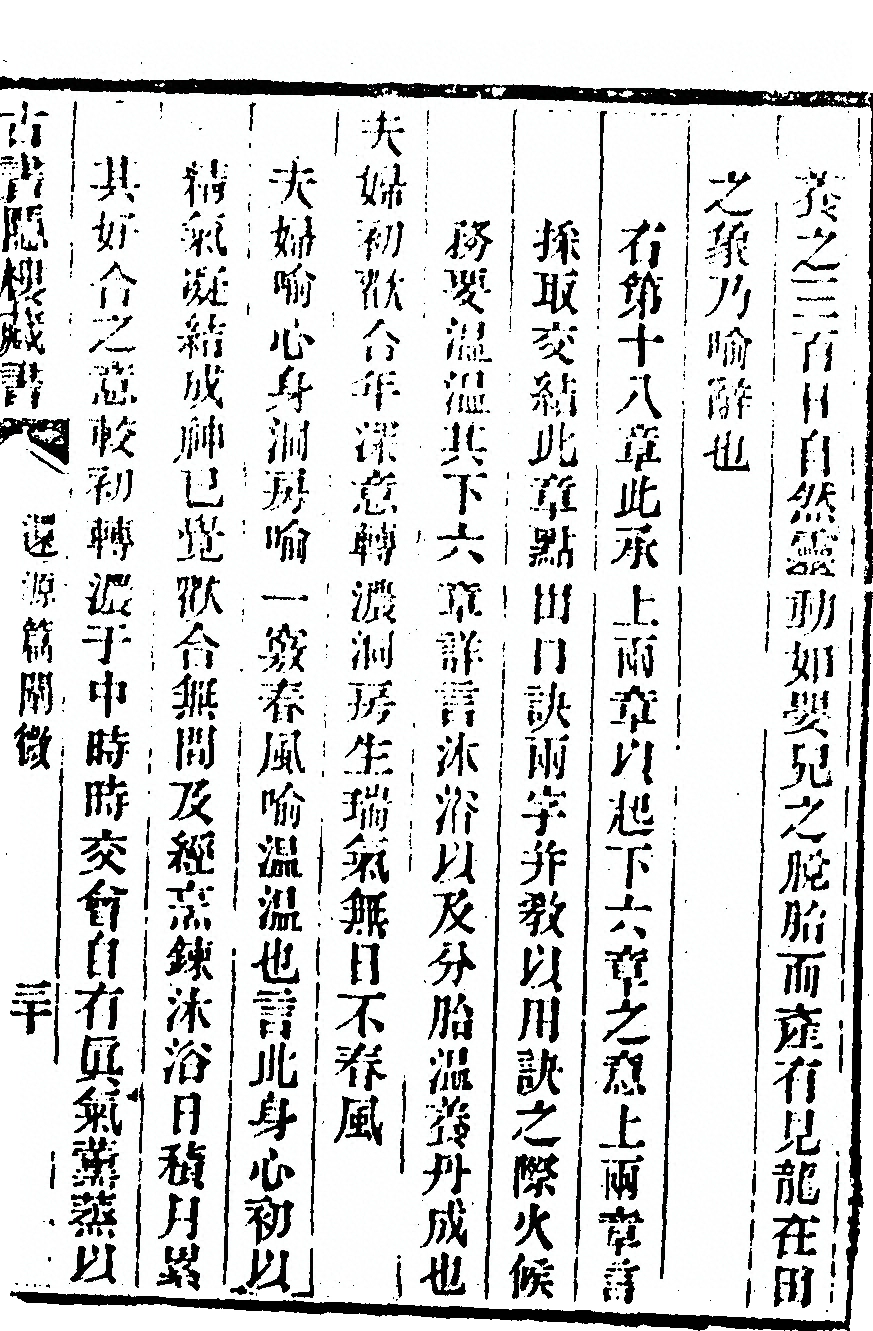 養之三百日自然靈動如嬰兒之脫胎而產有見龍在田
之象乃喻辭也
右第十八章此承上兩章以起下六章之意上兩章言
採取交結此章點出口訣兩字并教以用訣之際火候
務要溫溫其下六章詳言沐浴以及分胎溫養丹成也
夫婦初歡合年深意轉濃洞房生瑞氣無日不春風
夫婦喻心身洞房喻一竅春風喻溫溫也言此身心初以
精氣凝結成神已覺歡合無間及經烹鍊沐浴日積月累
其好合之意較初轉濃于中時時交會自有眞氣薰蒸以
古書隱樓藏書
還源篇闡微
三十